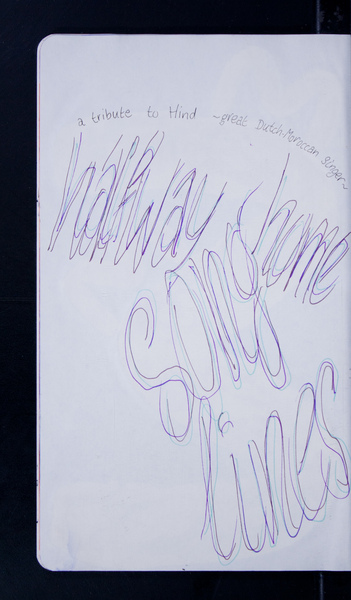 a tribute to Hind ~great Dutch-Moroccan singer~
halfway home
song
lines